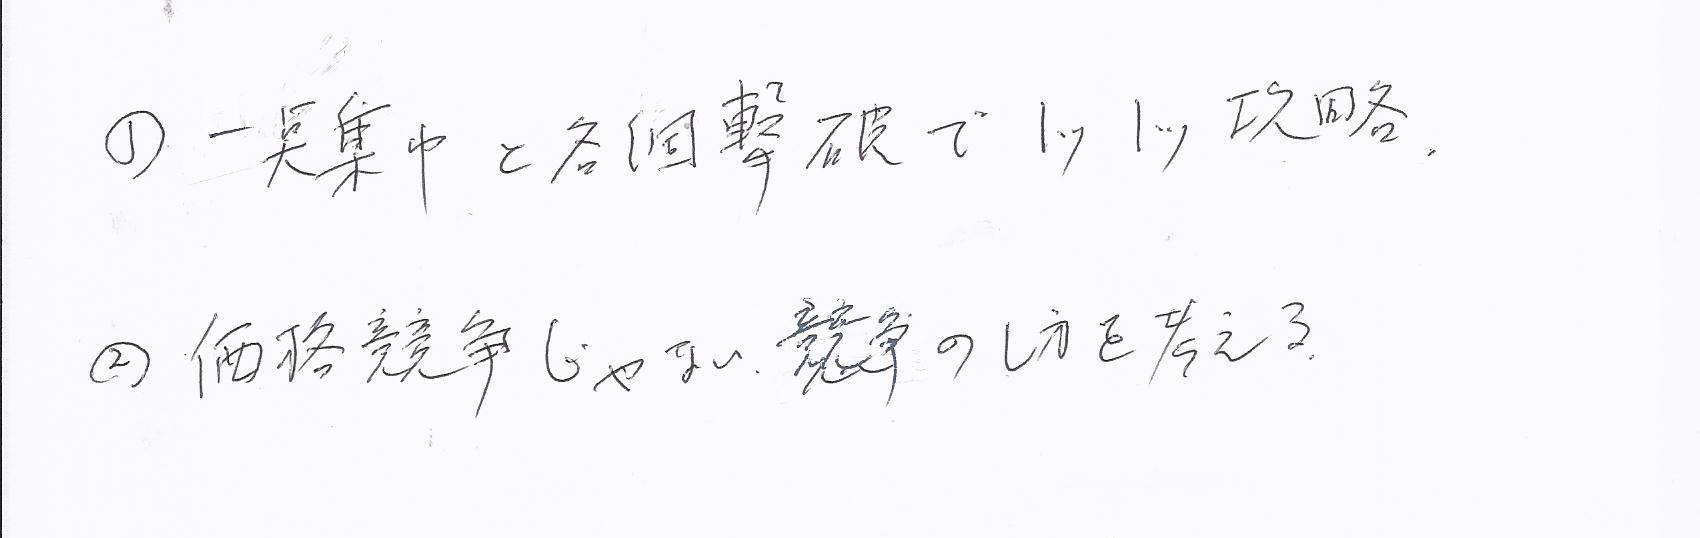 ① 一点集中と各個撃破で1つ1つ攻略.
② 価格競争じゃない競争のし方を考える.